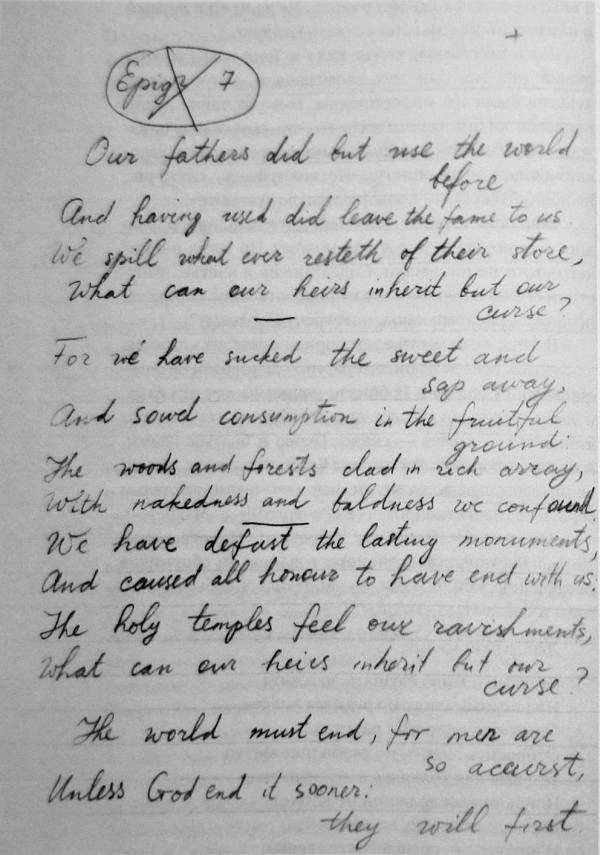 Epigr 7
Our fathers did but use the world
before
And having used did leave the fame to us.
We spill what ever resteth of their store,
What can our heirs inherit but our
curse?
For we have sucked the sweet and
sap away,
And sowd consumption in the fruitful
ground:
The woods and forests clad in rich array,
With nakedness and baldness we confound.
We have defast the lasting monuments,
And caused all honour to have end with us:
The holy temples feel our ravishments,
What can our heirs inherit but our
curse?
The world must end, for men are
so accurst,
Unless God end it sooner:
they will first.